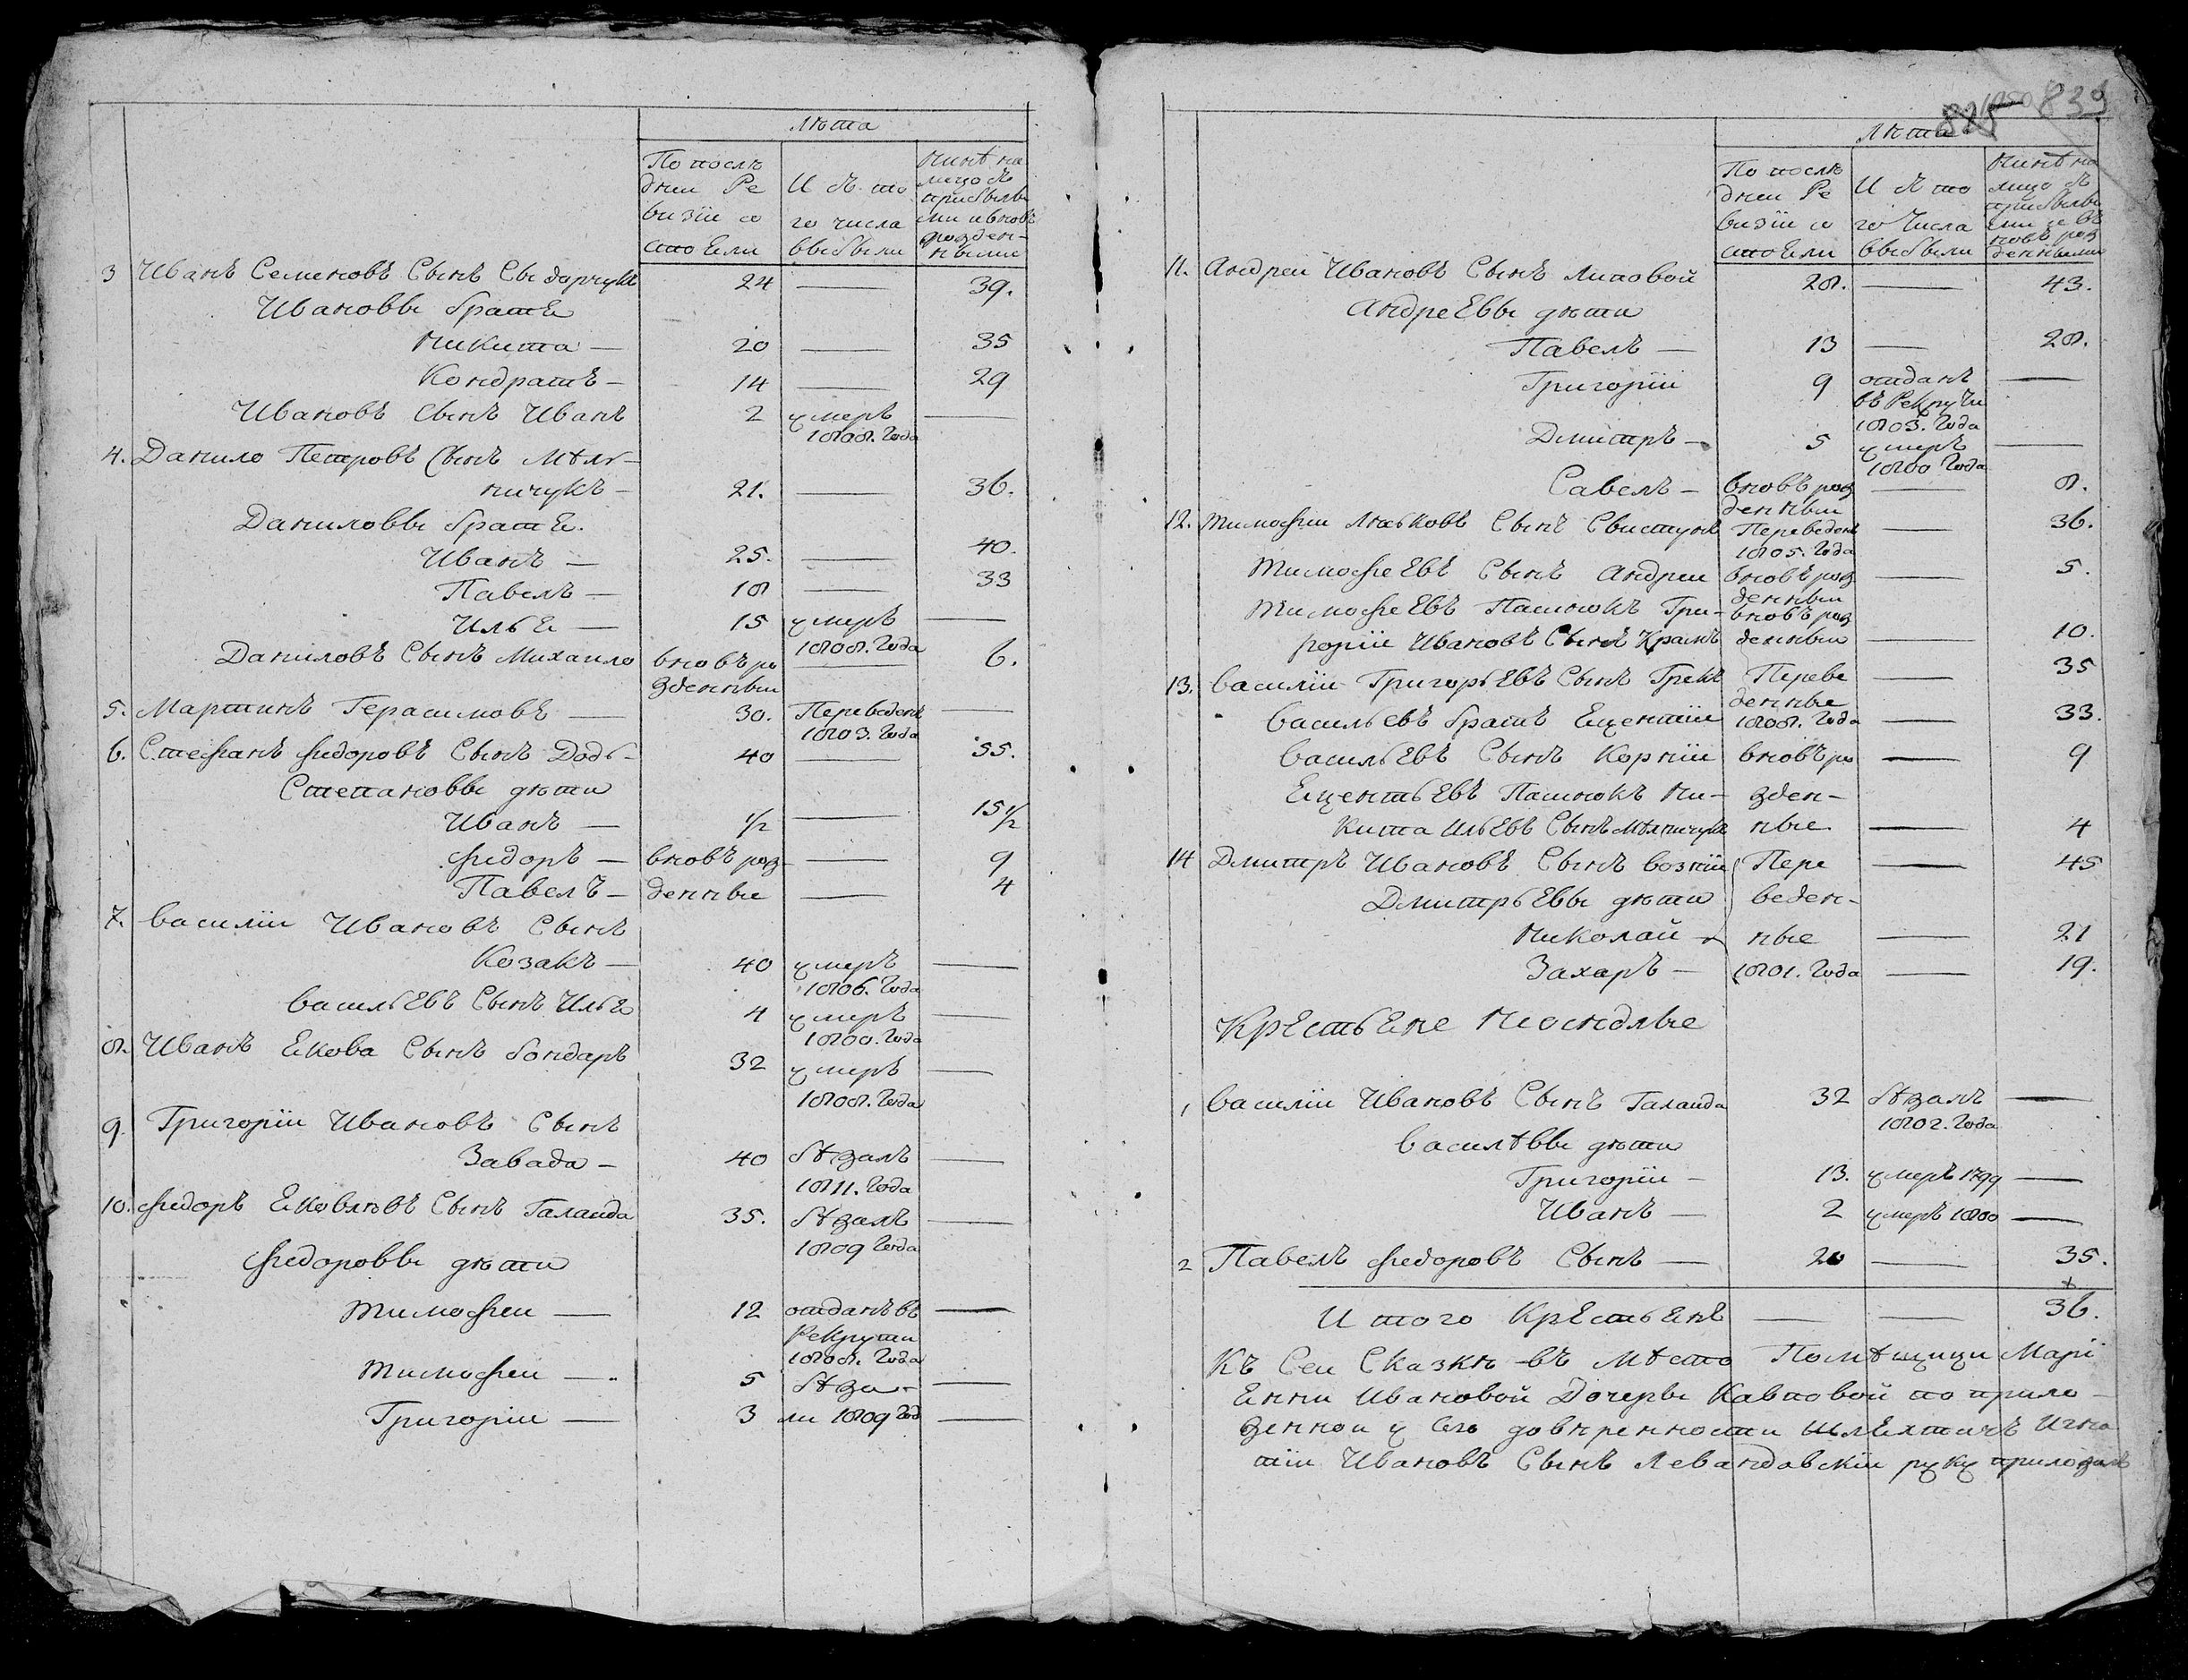 лѣта
По послѣ
дней Ре
визіи со
стоЕли
И съ то
го числа
выбыли
нинѣ на
лицо съ
прибылы
ми и вновъ
рожден-
ными
3 Иванъ Семеновъ Сынъ Сыдорчукъ 24 — 39.
Ивановы братЕ
Никита — 20 — 35
Кондратъ — 14 — 29
Ивановъ Сынъ Иванъ 2 умеръ —
1808. Года
4. Данило Петровъ Сынъ Мѣль-
ничукъ — 21. — 36.
Даниловы братЕ.
Иванъ — 25. — 40.
Павелъ — 18 — 33
ИльЕ — 15 умеръ —
1808. Года
Даниловъ Сынъ Михайло вновъ ро — 6.
жденный
5. Мартинъ Герасимовъ — 30. Переведенъ —
1803. Года
6. Стефанъ Федоровъ Сынъ Додь- 40 — 55.
Степановы дѣти
Иванъ — 1/2 — 15 1/2
Федоръ — вновъ рож — 9
Павелъ — денные — 4
7. Василій Ивановъ Сынъ
Козакъ — 40 умеръ —
1806. Года
ВасильЕвъ Сынъ ИльЕ 4 умеръ —
1800. Года
8. Иванъ Екова Сынъ бондаръ 32 умеръ —
1808. Года
9. Григорій Ивановъ Сынъ
Завада — 40 бѣжалъ —
1811. Года
10. Федоръ Ековлѣвъ Сынъ Галайда 35. бѣжалъ —
1809 Года
Федоровы дѣти
Тимофей — 12 отданъ въ —
Рекрути
1808. Года
Тимофей — 5 бѣжа- —
Григорій — 3 ли 1809 Год —
825 839
лѣта
По послѣ
дней Ре
визіи со
стоЕли
И съ то
го Числа
выбыли
нинѣ на
лицо съ
прибылы
ми и въ
новъ рож
денными
11. Андрей Ивановъ Сынъ Липовой 28. — 43.
АндреЕвы дѣти
Павелъ — 13 — 28.
Григорій 9 отданъ —
въ Рекрути
1803. Года
Дмитръ — 5 умеръ —
1800 Года
Савелъ — вновъ рож — 8.
денный
12. Тимофей Лѣсковъ Сынъ Свистунъ Переведенъ — 36.
1805. Года
ТимофеЕвъ Сынъ Андрей вновъ рож — 5.
денный
ТимофеЕвъ Пасынокъ Гри- вновъ рож
горій Ивановъ Сынъ Храмъ денный — 10.
13. Василій ГригорьЕвъ Сынъ Грекъ Переве — 35
денные
Васильевъ братъ Ецентій 1808. Года — 33.
ВасильЕвъ Сынъ Корній вновъ ро — 9
ЕцентьЕвъ Пасынокъ Ни- жден-
кита ИльЕвъ Сынъ Мѣлничукъ ные — 4
14 Дмитръ Ивановъ Сынъ возній Пере — 45
ДмитрьЕвы дѣти веден-
Николай — ные — 21
Захаръ — 1801. Года — 19.
КрЕстьЕне
1 Василій Ивановъ Сынъ Галайда 32 бѣжалъ —
1802. Года
Василѣвы дѣти
Григорій — 13. умеръ 1799 —
Иванъ — 2 умеръ 1800 —
2 Павелъ Федоровъ Сынъ — 20 — 35.
Итого КрЕстьЕнъ — — 36.
Къ Сей Сказкѣ въ Мѣсто Помѣщици Марі
Енни Ивановой Дочеры по прило-
женной у Сего довѣренности ШлЕхтичъ Игна
тій Ивановъ Сынъ Левандовскій руку приложилъ